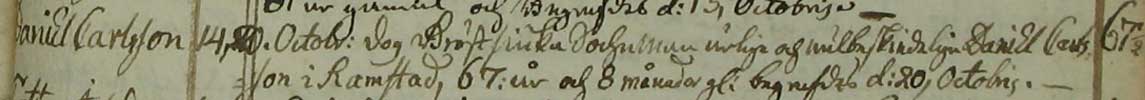 år gammal och Begrofdes d: 15, Octobris
Daniel Carlsson 14, D. Octobr: dog Bröstsiuka Sochnman ärlige och wälbeskedelige Daniel Carls- 67:
=son i Ramstad, 67: år och 8 månader gl: begrofdes d: 20, Octobris.